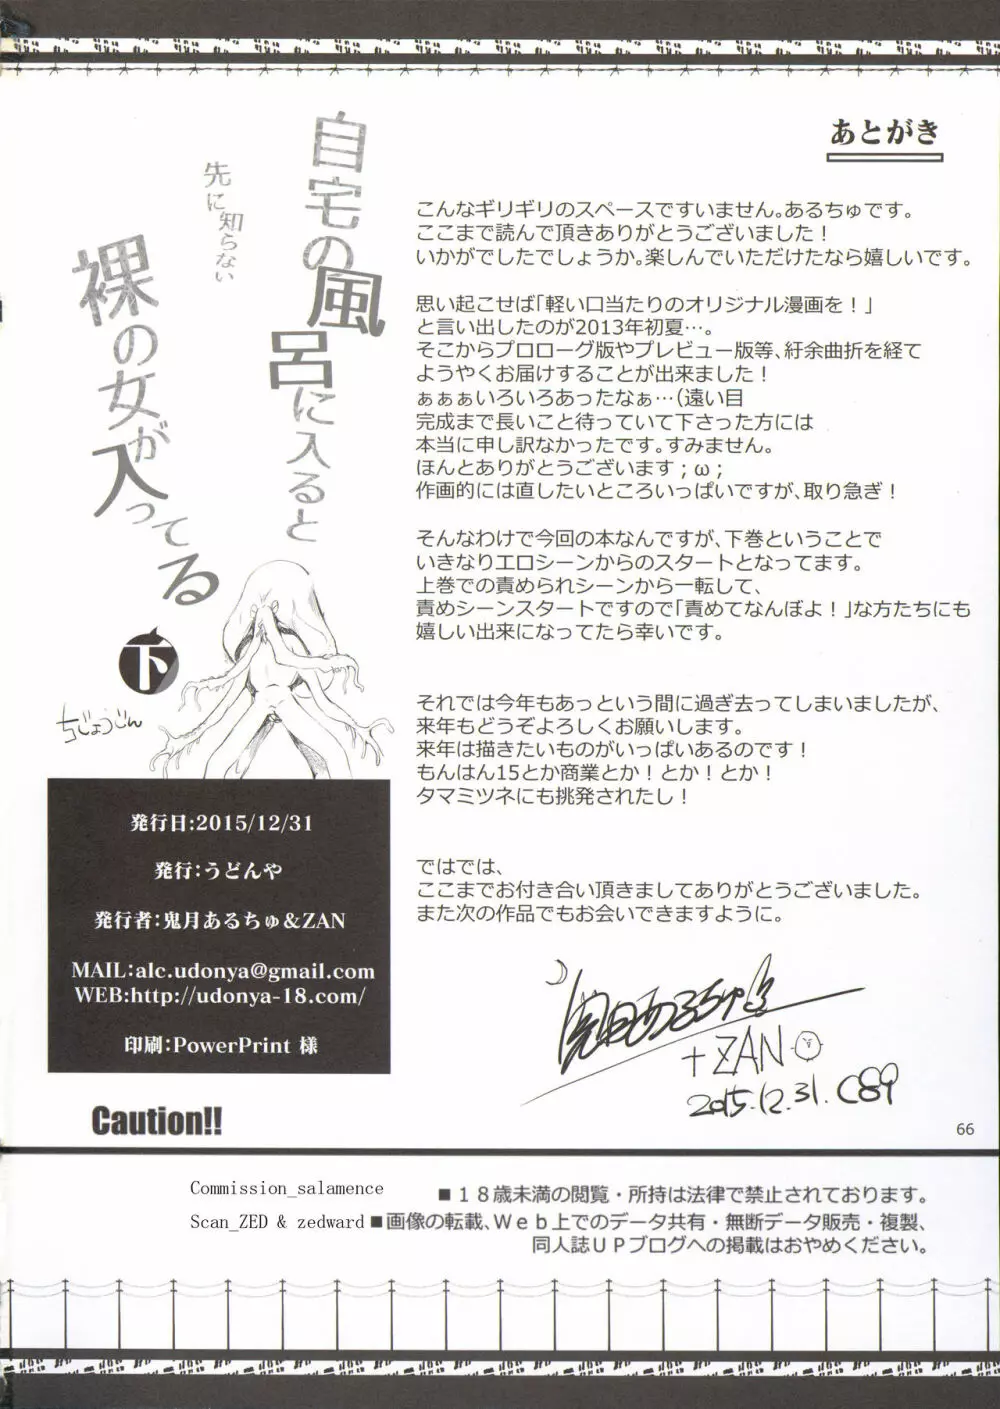 あとがき
こんなギリギリのスペースですいません。あるちゅです。
ここまで読んで頂きありがとうございました！
いかがでしたでしょうか。楽しんでいただけたなら嬉しいです。
思い起こせば「軽い口当たりのオリジナル漫画を！」
と言い出したのが2013年初夏…。
そこからプロローグ版やプレビュー版等、紆余曲折を経て
ようやくお届けすることが出来ました！
ぁぁぁいろいろあったなぁ…（遠い目
完成まで長いこと待っていて下さった方には
本当に申し訳なかったです。すみません。
ほんとありがとうございます；ω；
作画的には直したいところいっぱいですが、取り急ぎ！
そんなわけで今回の本なんですが、下巻ということで
いきなりエロシーンからのスタートとなってます。
上巻での責められシーンから一転して、
責めシーンスタートですので「責めてなんぼよ！」な方たちにも
嬉しい出来になってたら幸いです。
それでは今年もあっという間に過ぎ去ってしまいましたが、
来年もどうぞよろしくお願いします。
来年は描きたいものがいっぱいあるのです！
もんはん15とか商業とか！とか！とか！
タマミツネにも挑発されたし！
ではでは、
ここまでお付き合い頂きましてありがとうございました。
また次の作品でもお会いできますように。
鬼月あるちゅ
+ZAN
2015.12.31. C89
自宅の風呂に入ると
先に知らない
裸の女が入ってる
下
ちじょうじん
発行日:2015/12/31
発行:うどんや
発行者:鬼月あるちゅ&ZAN
MAIL:alc.udonya@gmail.com
WEB:http://udonya-18.com/
印刷:PowerPrint 様
Caution!!
66
Commission_salamence
Scan_ZED & zedward
■１８歳未満の閲覧・所持は法律で禁止されております。
■画像の転載、Ｗｅｂ上でのデータ共有・無断データ販売・複製、
同人誌ＵＰブログへの掲載はおやめください。